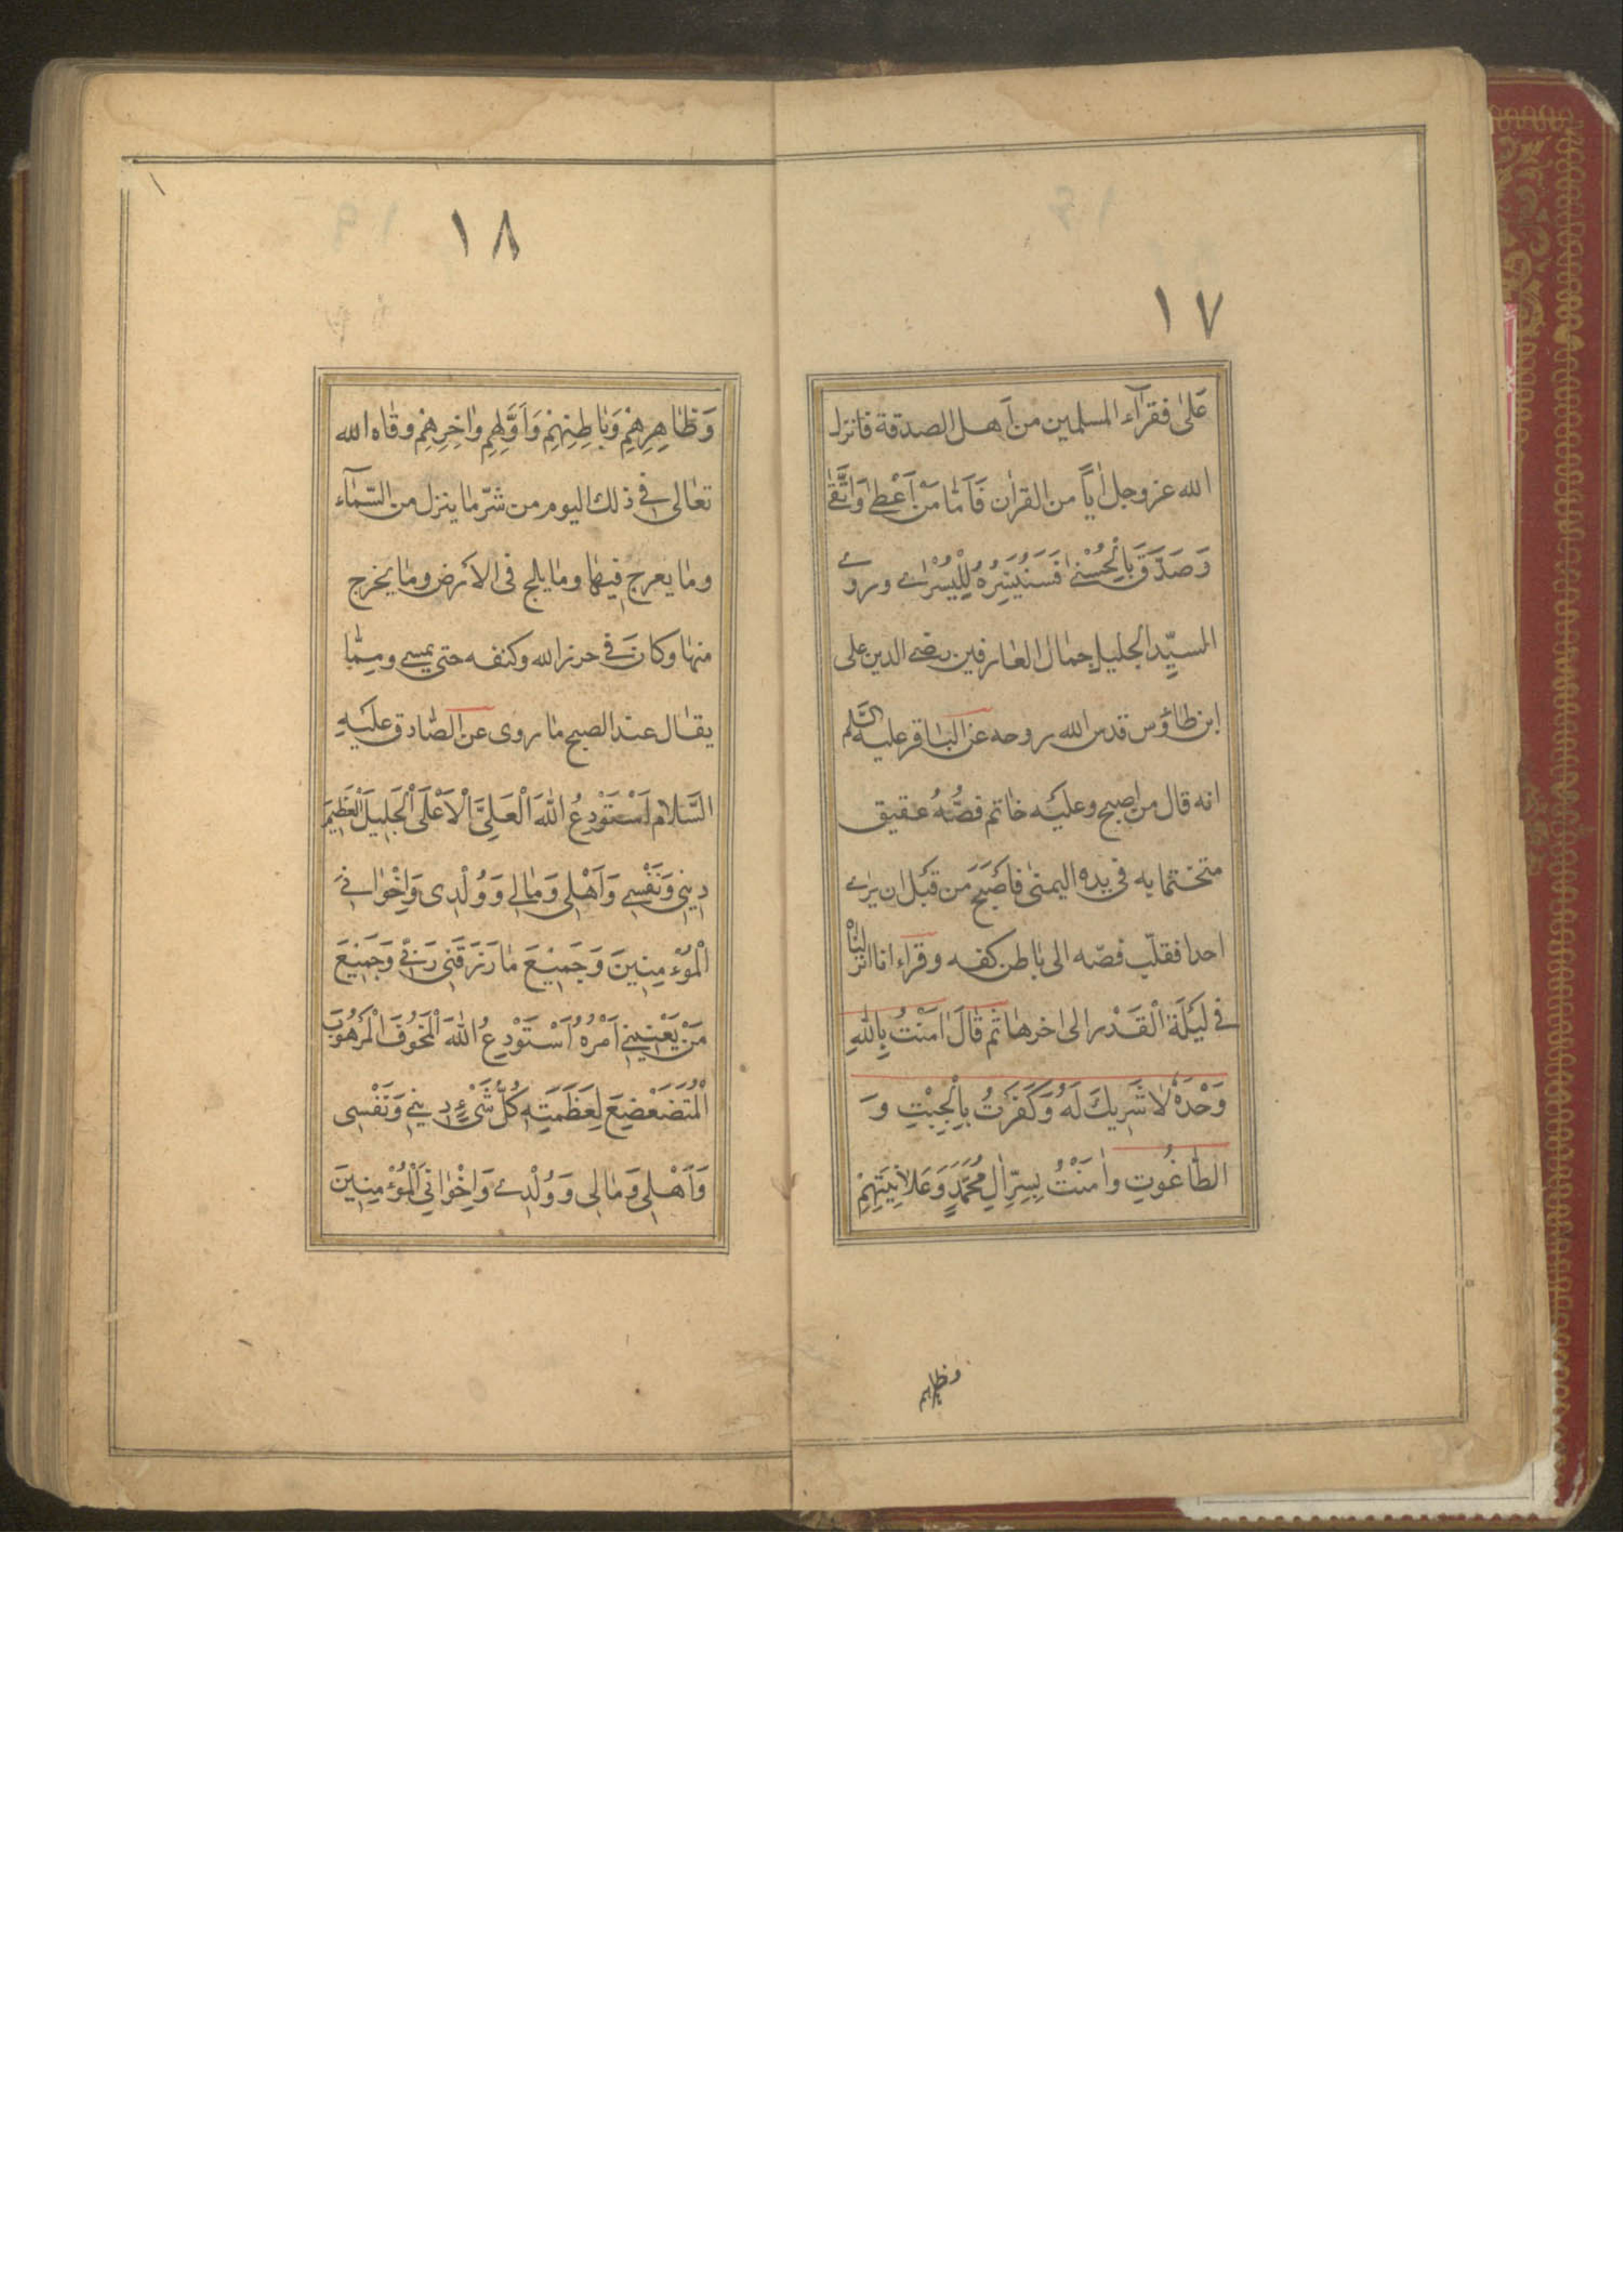 ١٧
عَلیٰ فقرآء المسلمین من اَهل الصدقة فانزل
الله عز وجل اٰیاً من القراٰن فَاَمّٰا مَنْ اَعْطیٰ وَاتَّقیٰ
وَصَدَّقَ بِالْحُسْنیٰ فَسَنُیَسِّرُهُ لِلْیُسْرٰے وروے
السیّد الجلیل جمال العارفین رضے الدین علی
ابن طاؤس قدس الله روحه عن الباقر علیه السّلم
انه قال من اصبح وعلیه خاتم فصُّهُ عقیق
متختما به فی یده الیمنیٰ فاَصْبَحَ من قبل ان یرٰے
احدا فقلّب فصّه الی باطن کفه وقراء انا انزلناه
فے لَیْلَةِ الْقَدْر الی اخرها ثم قٰالَ اٰمَنْتُ بِاللهِ
وَحْدَهُ لٰا شَرِیكَ لَهُ وَكَفَرْتُ بِالْجِبْتِ وَ
الطّٰاغُوتِ واٰمَنْتُ بِسِرِّ اٰلِ مُحَمَّدٍ وَعَلاٰنِیَتِهِمْ
وظاهرهم
١٨
وَظٰاهِرِهِمْ وَبٰاطِنِهِمْ وَاَوَّلِهِم واٰخِرِهِمْ وقٰاه الله
تعٰالی فے ذلك الیوم من شرّ ما ینزل من السّمٰآء
وما یعرج فیها وما یلج فی الاَرض وما یخرج
منها وكان فے حرز الله وكنفه حتی یمسے ومِمّٰا
یقال عند الصبح ما روی عن الصّٰادق عَلَیْهِ
السَّلام اَسْتَوْدِعُ اللهَ الْعَلِیَّ الْاَعْلَی الْجَلِیلَ الْعَظِیمَ
دِینِی وَنَفْسِے وَاَهْلِی وَمٰالِے وَوُلْدِی وَاِخْوٰانِے
الْمُؤْمِنِینَ وَجَمِیْعَ مٰا رَزَقَنِی رَبّے وَجَمِیْعَ
مَنْ یَعْنِیْنِے اَمْرُهُ اَسْتَوْدِعُ اللهَ الْمَخُوفَ الْمَرْهُوبَ
الْمُتَضَعْضِعَ لِعَظَمَتِهِ كُلُّ شَیْءٍ دِینِے وَنَفْسِی
وَاَهْلِی وَمٰالِی وَوُلْدِے وَاِخْوٰانِی الْمُؤْمِنِینَ